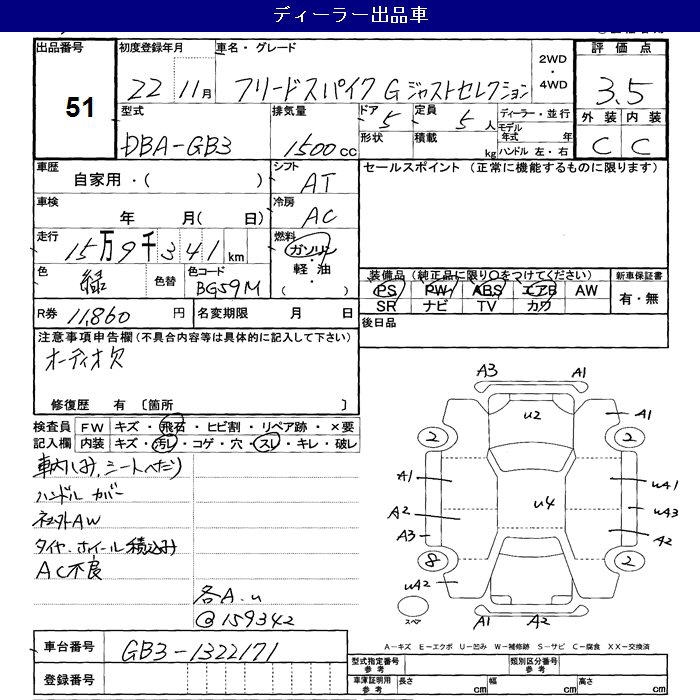 ディーラー出品車
出品番号 51
初度登録年月 22 11月
車名・グレード フリードスパイク G ジャストセレクション
2WD・4WD
評価点 3.5
外装 内装
C C
型式 DBA-GB3
排気量 1500cc
ドア 5
形状
定員 5人
積載 kg
ディーラー・並行
モデル年式 年
ハンドル 左・右
車歴 自家用・( )
シフト AT
車検 年 月( 日)
冷房 AC
走行 15万9千341km
燃料 ガソリン・軽油・( )
色 緑
色替
色コード BG59M
R券 11,860 円
名変期限 月 日
セールスポイント (正常に機能するものに限ります)
装備品(純正品に限り○をつけてください)
PS PW ABS エアB AW
SR ナビ TV カワ
新車保証書
有・無
後日品
注意事項申告欄(不具合内容等は具体的に記入して下さい)
オーディオ欠
修復歴 有 [箇所 ]
検査員記入欄
FW キズ・飛石・ヒビ割・リペア跡・×要
内装 キズ・汚レ・コゲ・穴・スレ・キレ・破レ
車内しみ、シートへたり
ハンドルカバー
社外AW
タイヤ・ホイール積込み
AC不良
各A.u
@159342
A3 A1
u2 A1
2 2
A1 uA1
u4
A2 uA3
A3 A2
8 2
uA2
スペア
A1 A2
A−キズ E−エクボ U−凹み W−補修跡 S−サビ C−腐食 XX−交換済
車台番号 GB3-1322171
登録番号
型式指定番号 参考
類別区分番号 参考
車庫証明用 参考
長さ cm 幅 cm 高さ cm